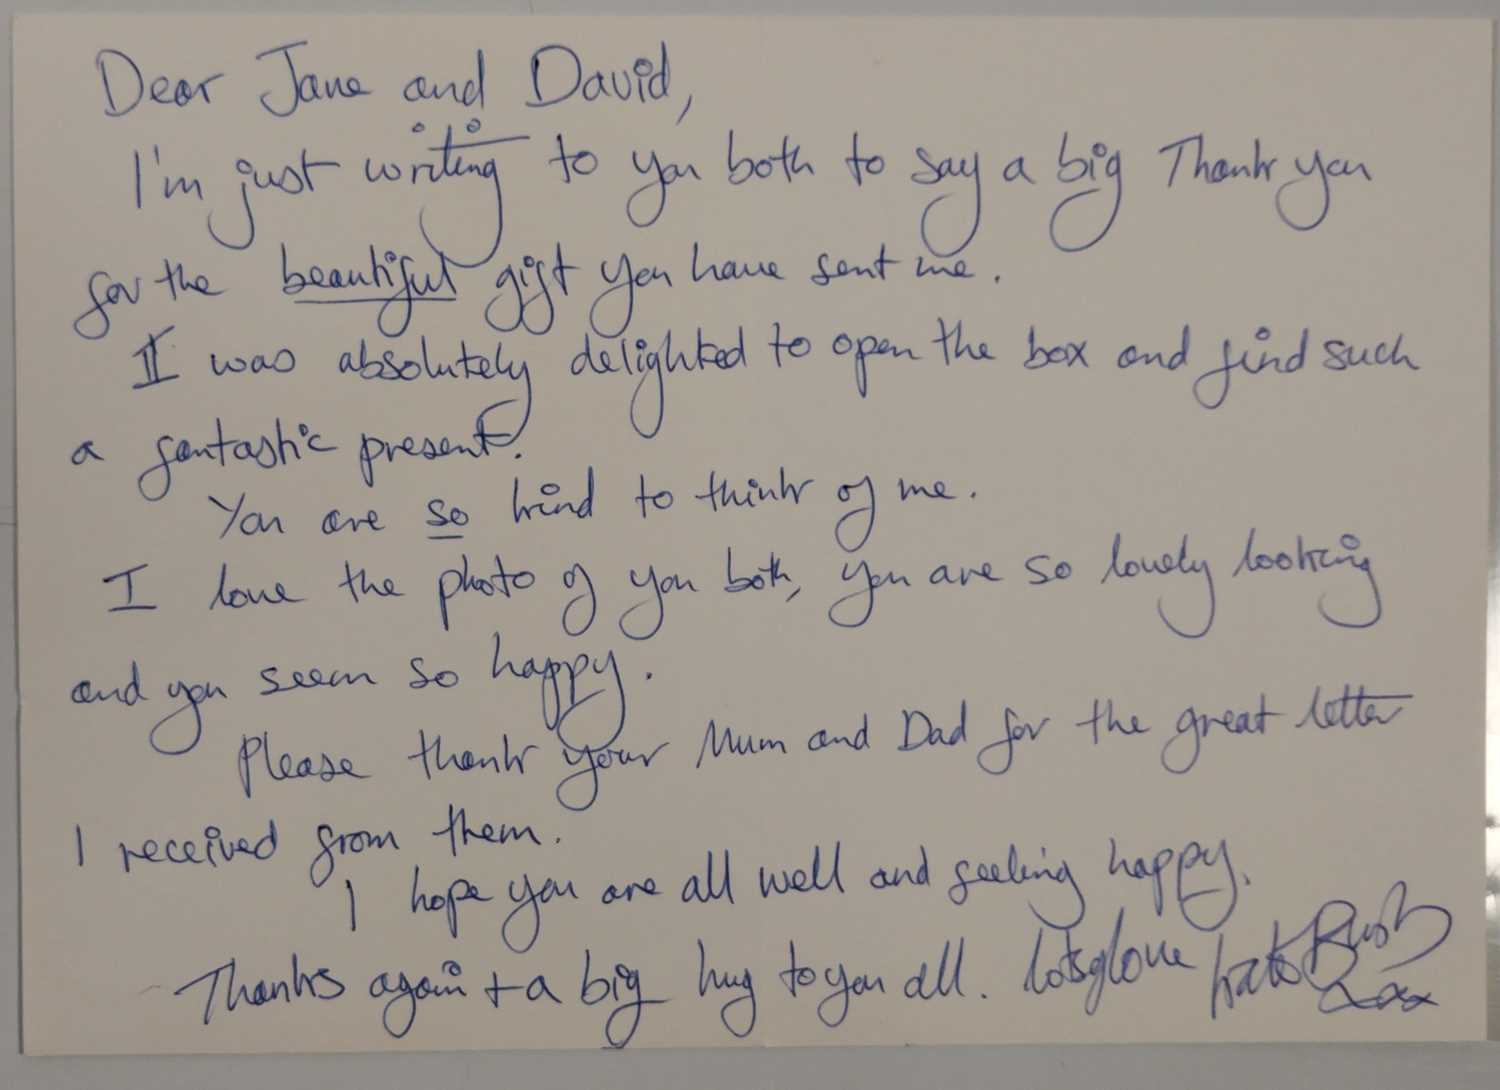 Dear Jane and David,
I'm just writing to you both to say a big Thank you
for the beautiful gift you have sent me.
I was absolutely delighted to open the box and find such
a fantastic present.
You are so kind to think of me.
I love the photo of you both, you are so lovely looking
and you seem so happy.
Please thank your Mum and Dad for the great letter
I received from them.
I hope you are all well and feeling happy.
Thanks again + a big hug to you all. Lots of love Kate Bush
xxx